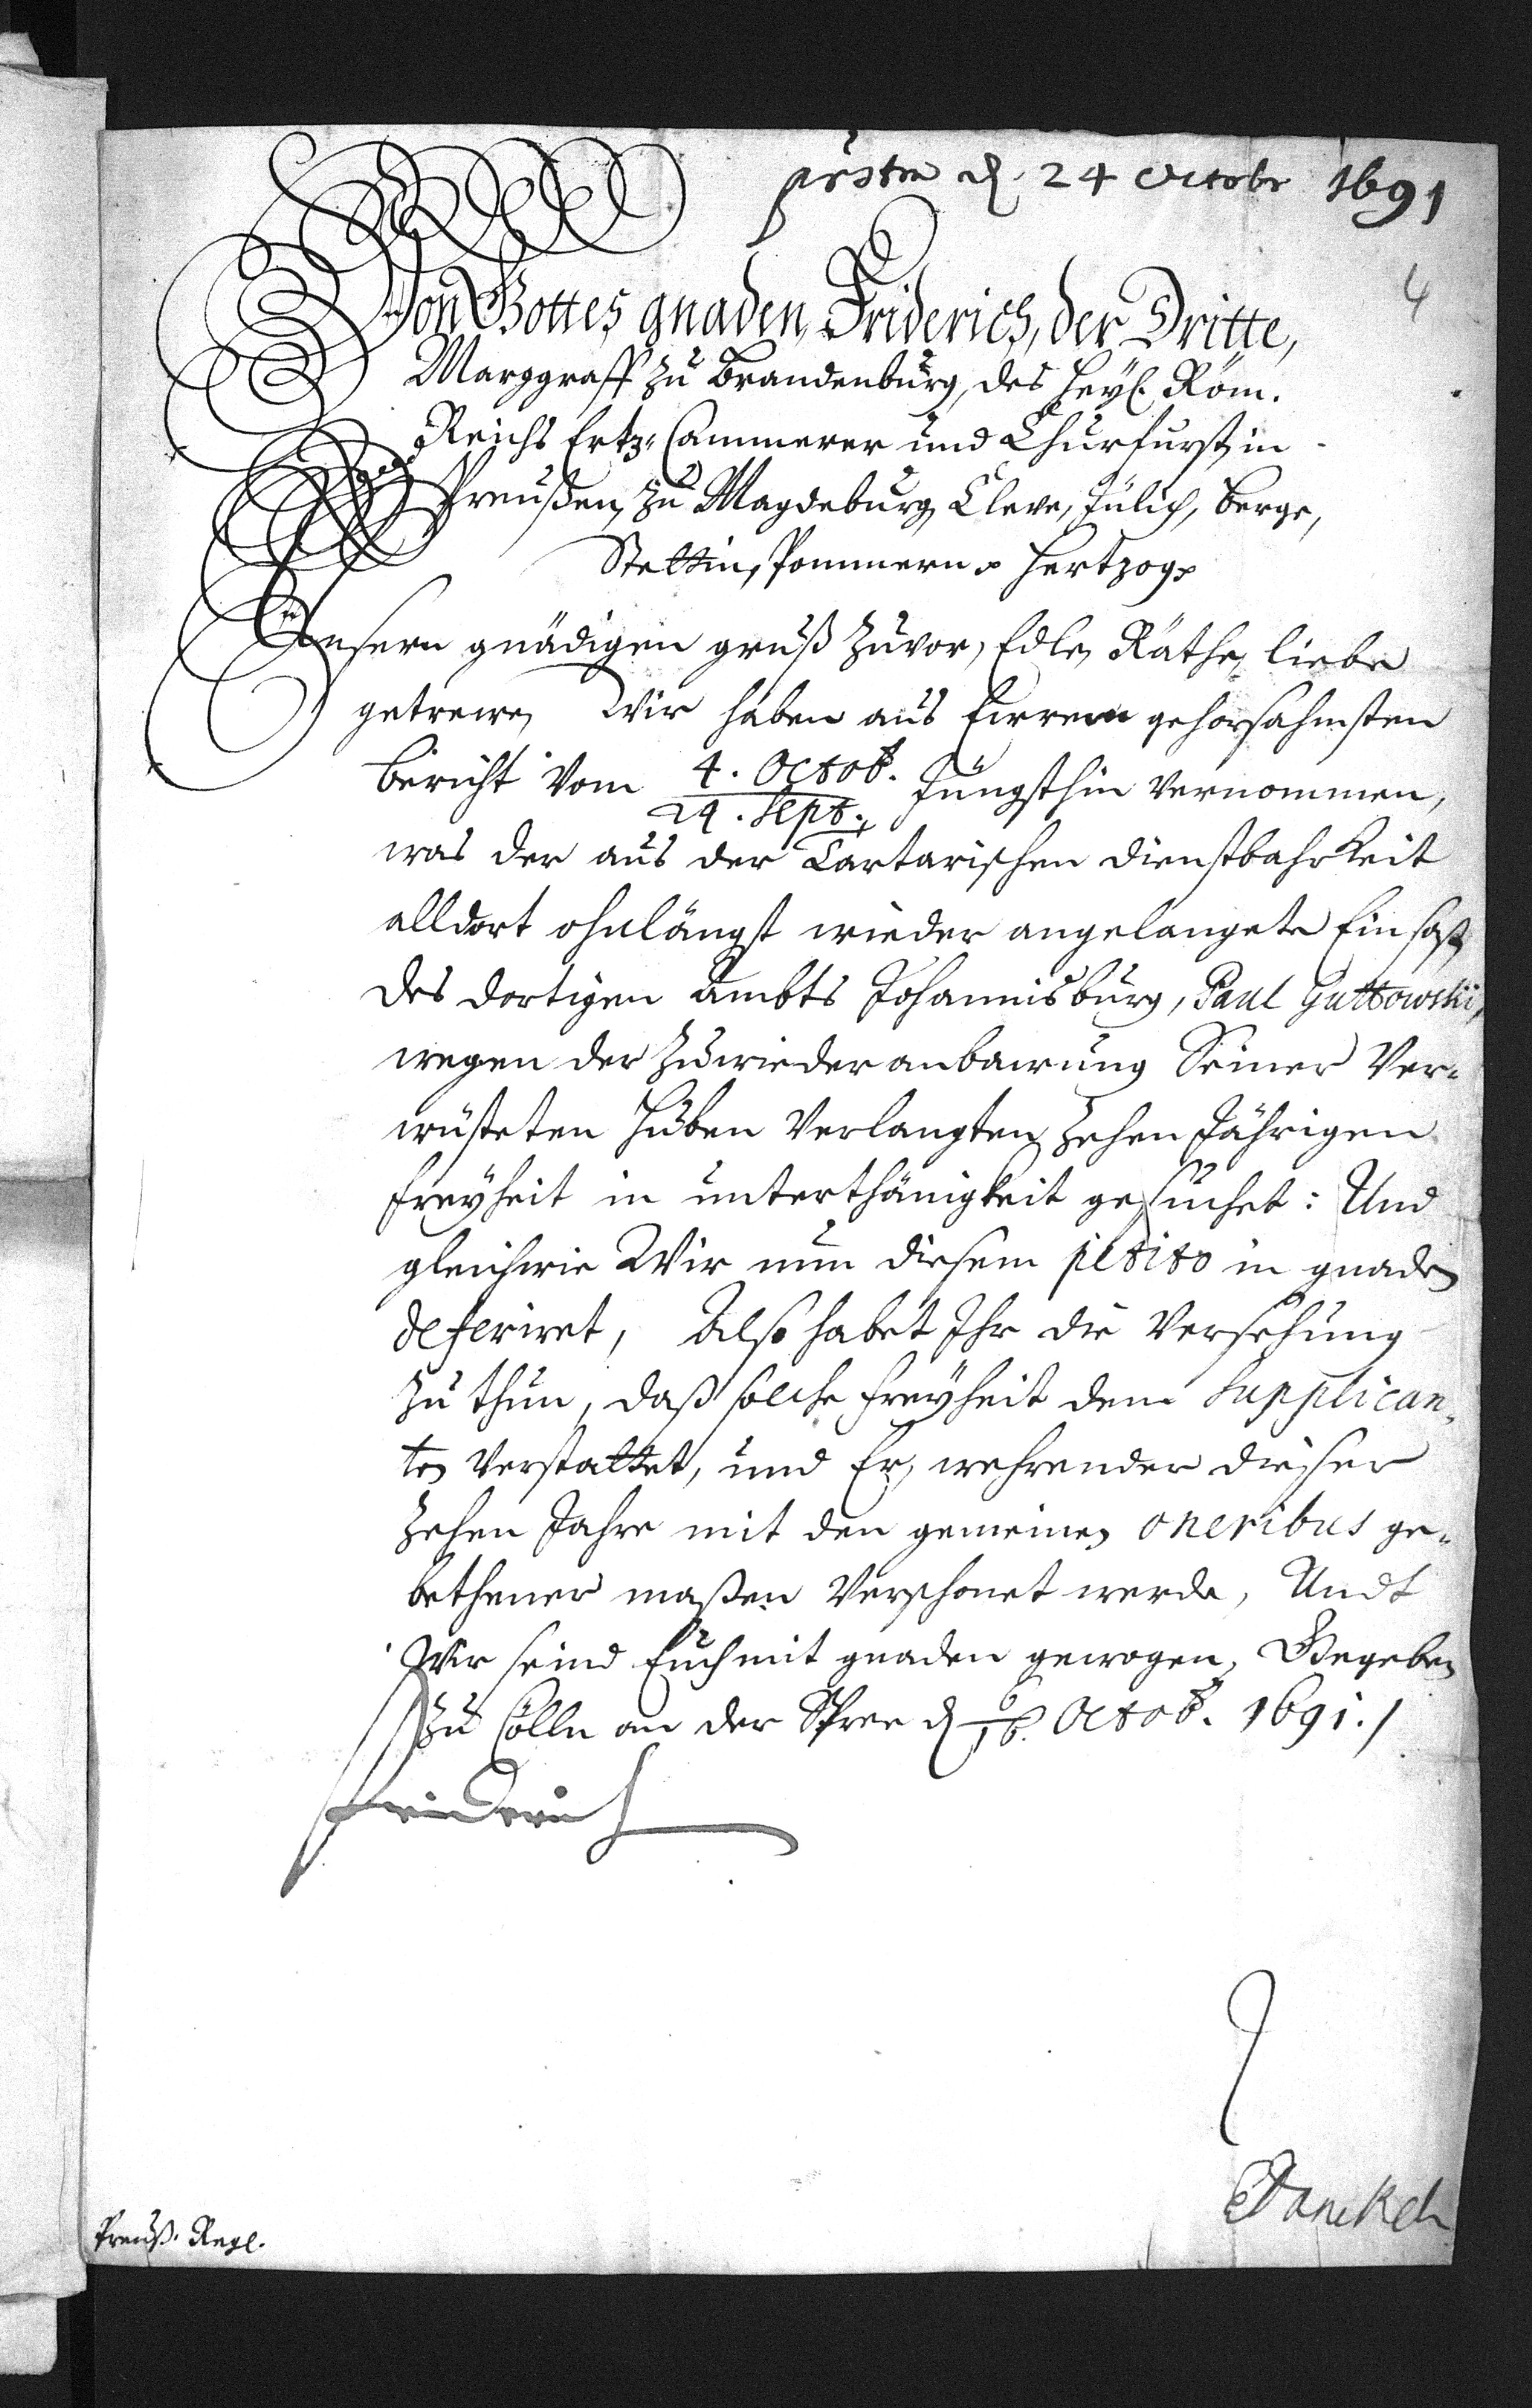 prstm d. 24 Octobr 1691
4
Von Gottes gnaden, Friderich, der Dritte,
Marggraff zu Brandenburg, des Heyl. Röm.
Reichs Ertz-Cammerer und Churfürst, in
Preußen, zu Magdeburg, Cleve, Jülich, Berge,
Stettin, Pommern p Hertzog p
Unsern gnädigen gruß zuvor, Edle, Räthe, liebe
getrewe, Wir haben aus Eurem gehorsahmsten
bericht vom 4. Octob. / 24. Sept. jüngsthin vernommen,
was der aus der Tartarischen dienstbahrkeit
alldort ohnlängst wieder angelangete Einsaß
des dortigen Ambts Johannisburg, Paul Guttowski,
wegen der zu wiederanbawung Seiner ver-
wüsteten Huben verlangten zehen Jährigen
freyheit in unterthänigkeit gesuchet: Und
gleichwie Wir nun diesem petito in gnaden
deferiret, Also habet Ihr die Versehung
zu thun, daß solche freyheit dem Supplican-
ten verstattet, und Er, wehrender dieser
zehen Jahre mit den gemeinen oneribus ge-
bethener maßen verschonet werde, Undt
Wir seind Euch mit gnaden gewogen, Gegeben
zu Cölln an der Spree d. 6/16. Octob. 1691./
Friderich
EDanckel
Preuß. Regl.